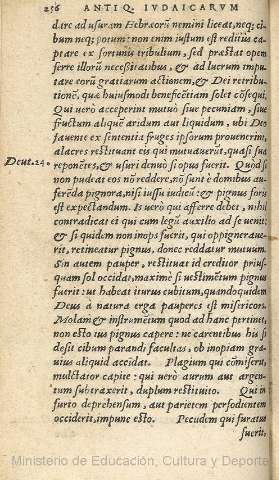 256 ANTIQ. IVDAICARVM
dare ad usuram Hebræorū nemini liceat, neq; ci-
bum neq; potum: non enim iustum est reditus ca-
ptare ex fortunis tribulium, sed præstat opem
ferre illorū necessitatibus, & ad lucrum impu-
tare eorū gratiarum actionem, & Dei retributi-
onē, quæ huiusmodi beneficētiam solet cōsequi.
Qui uerò acceperint mutuò siue pecuniam, siue
fructum aliquē aridum aut liquidum, ubi Deo
fauente ex sententia fruges ipsorum prouenerint,
alacres restituant eis qui mutuauerūt, quasi sua
Deut. 24. reponētes, & usuri denuò si opus fuerit. Quod si
non pudeat eos nō reddere, nō sunt è domibus au-
ferēda pignora, nisi iussu iudicū: & pignus foris
est expectandum. Is uerò qui afferre debet, nihil
contradicat ei qui cum legū auxilio ad se uenit:
& si quidem non inops fuerit, qui oppignerauе-
rit, retineatur pignus, donec reddatur mutuum.
Sin autem pauper, restituat id creditor prius-
quam sol occidat, maximè si uestimētum pignus
fuerit: ut habeat iturus cubitum, quandoquidem
Deus à natura erga pauperes est misericors.
Molam & instrumētum quod ad hanc pertinet,
non esto ius pignus capere: ne carentibus his
desit cibum parandi facultas, ob inopiam gra-
uius aliquid accidat. Plagium qui cōmiserit,
mulctator capite: qui uerò aurum aut argen-
tum subtraxerit, duplum restituito. Qui in
furto deprehensum, aut parietem perfodientem
occiderit, impune esto. Pecudem qui furatus
fuerit,
Ministerio de Educación, Cultura y Deporte